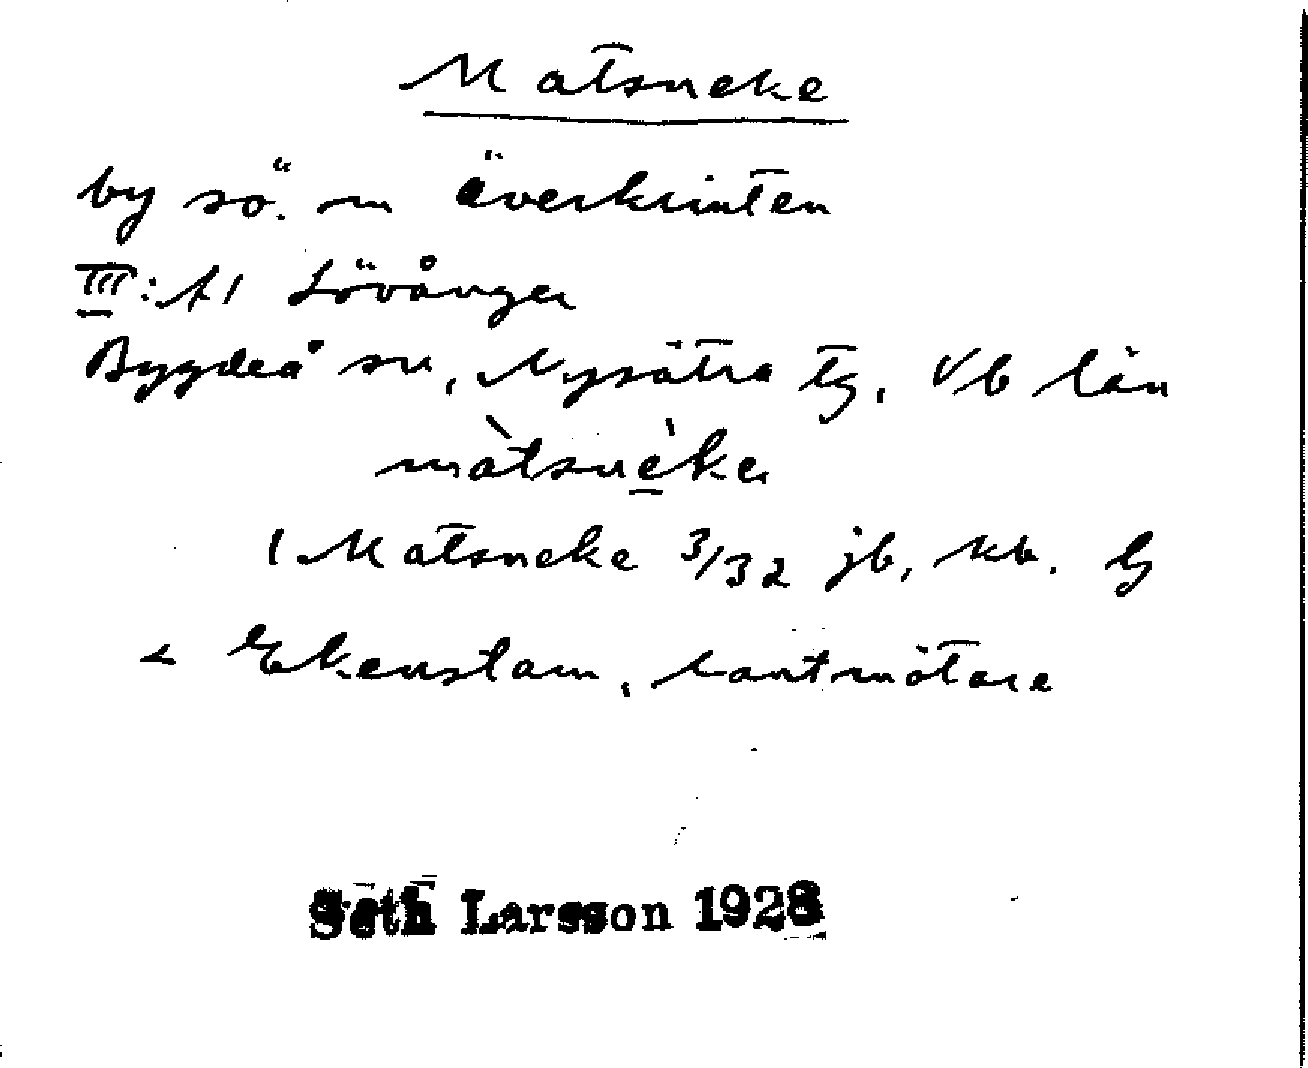 Matsneke
by sö. om Överklinten
III: A1 Lövånger
Bygdeå sn, Nysätra tg, Vb län
màtsnèke
1 Matsneke 3/32 jb,
Ekenstam, lantmätare
Seth Larsson 1928